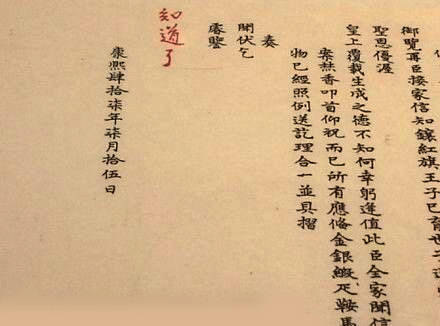 御覽再臣接家信知鑲紅旗王子已育世子
聖恩優渥
皇上覆載生成之德不知何幸躬逢值此臣全家聞信
案焚香叩首仰祝而已所有應俻金銀緞疋鞍馬
物已經照例送訖理合一並具摺
奏
聞伏乞
睿鑒
知道了
康熙肆拾柒年柒月拾伍日